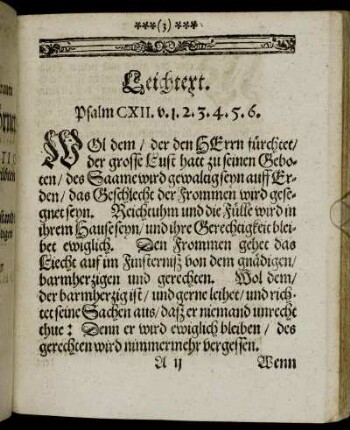 ***(3)***
Leichtext.
Psalm CXII. v. 1. 2. 3. 4. 5. 6.
WOl dem / der den HErrn fürchtet/
der grosse Lust hatt zu seinen Gebo-
ten / des Saame wird gewaltig seyn auff Er-
den / das Geschlecht der Frommen wird gese-
gnet seyn. Reichtuhm und die Fülle wird in
ihrem Hause seyn, und ihre Gerechtigkeit blei-
bet ewiglich. Den Frommen gehet das
Liecht auf im Finsterniß von dem gnädigen/
barmherzigen und gerechten. Wol dem/
der barmherzig ist / und gerne leihet / und rich-
tet seine Sachen aus / daß er niemand unrecht
thue: Denn er wird ewiglich bleiben / des
gerechten wird nimmermehr vergessen.
A ij Wenn